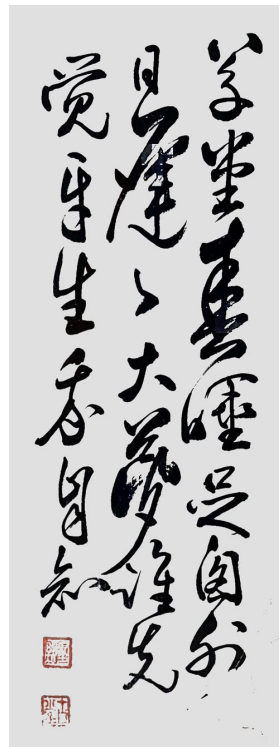 草堂春睡足窗外
日遲々大夢誰先
觉平生我自知